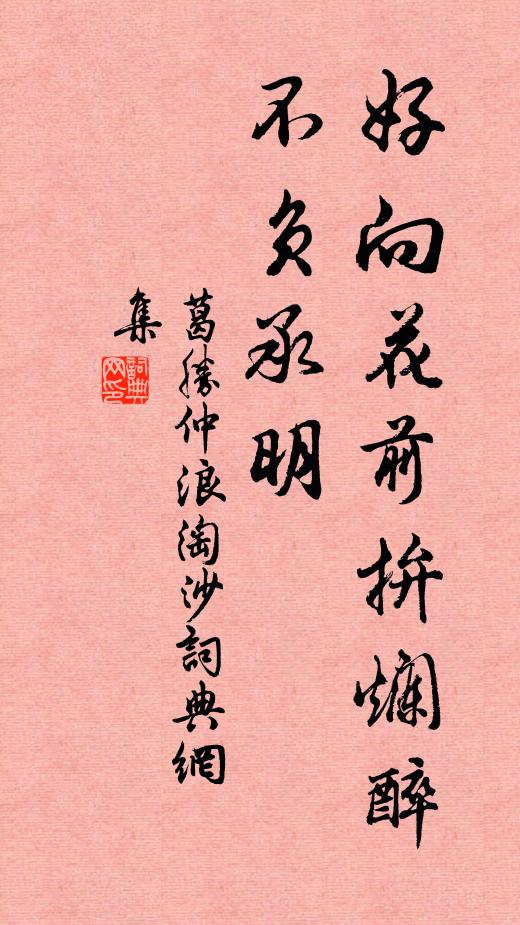 好向花前拚爛醉
不負承明
葛勝仲浪淘沙詞典網
集
詞典
网印